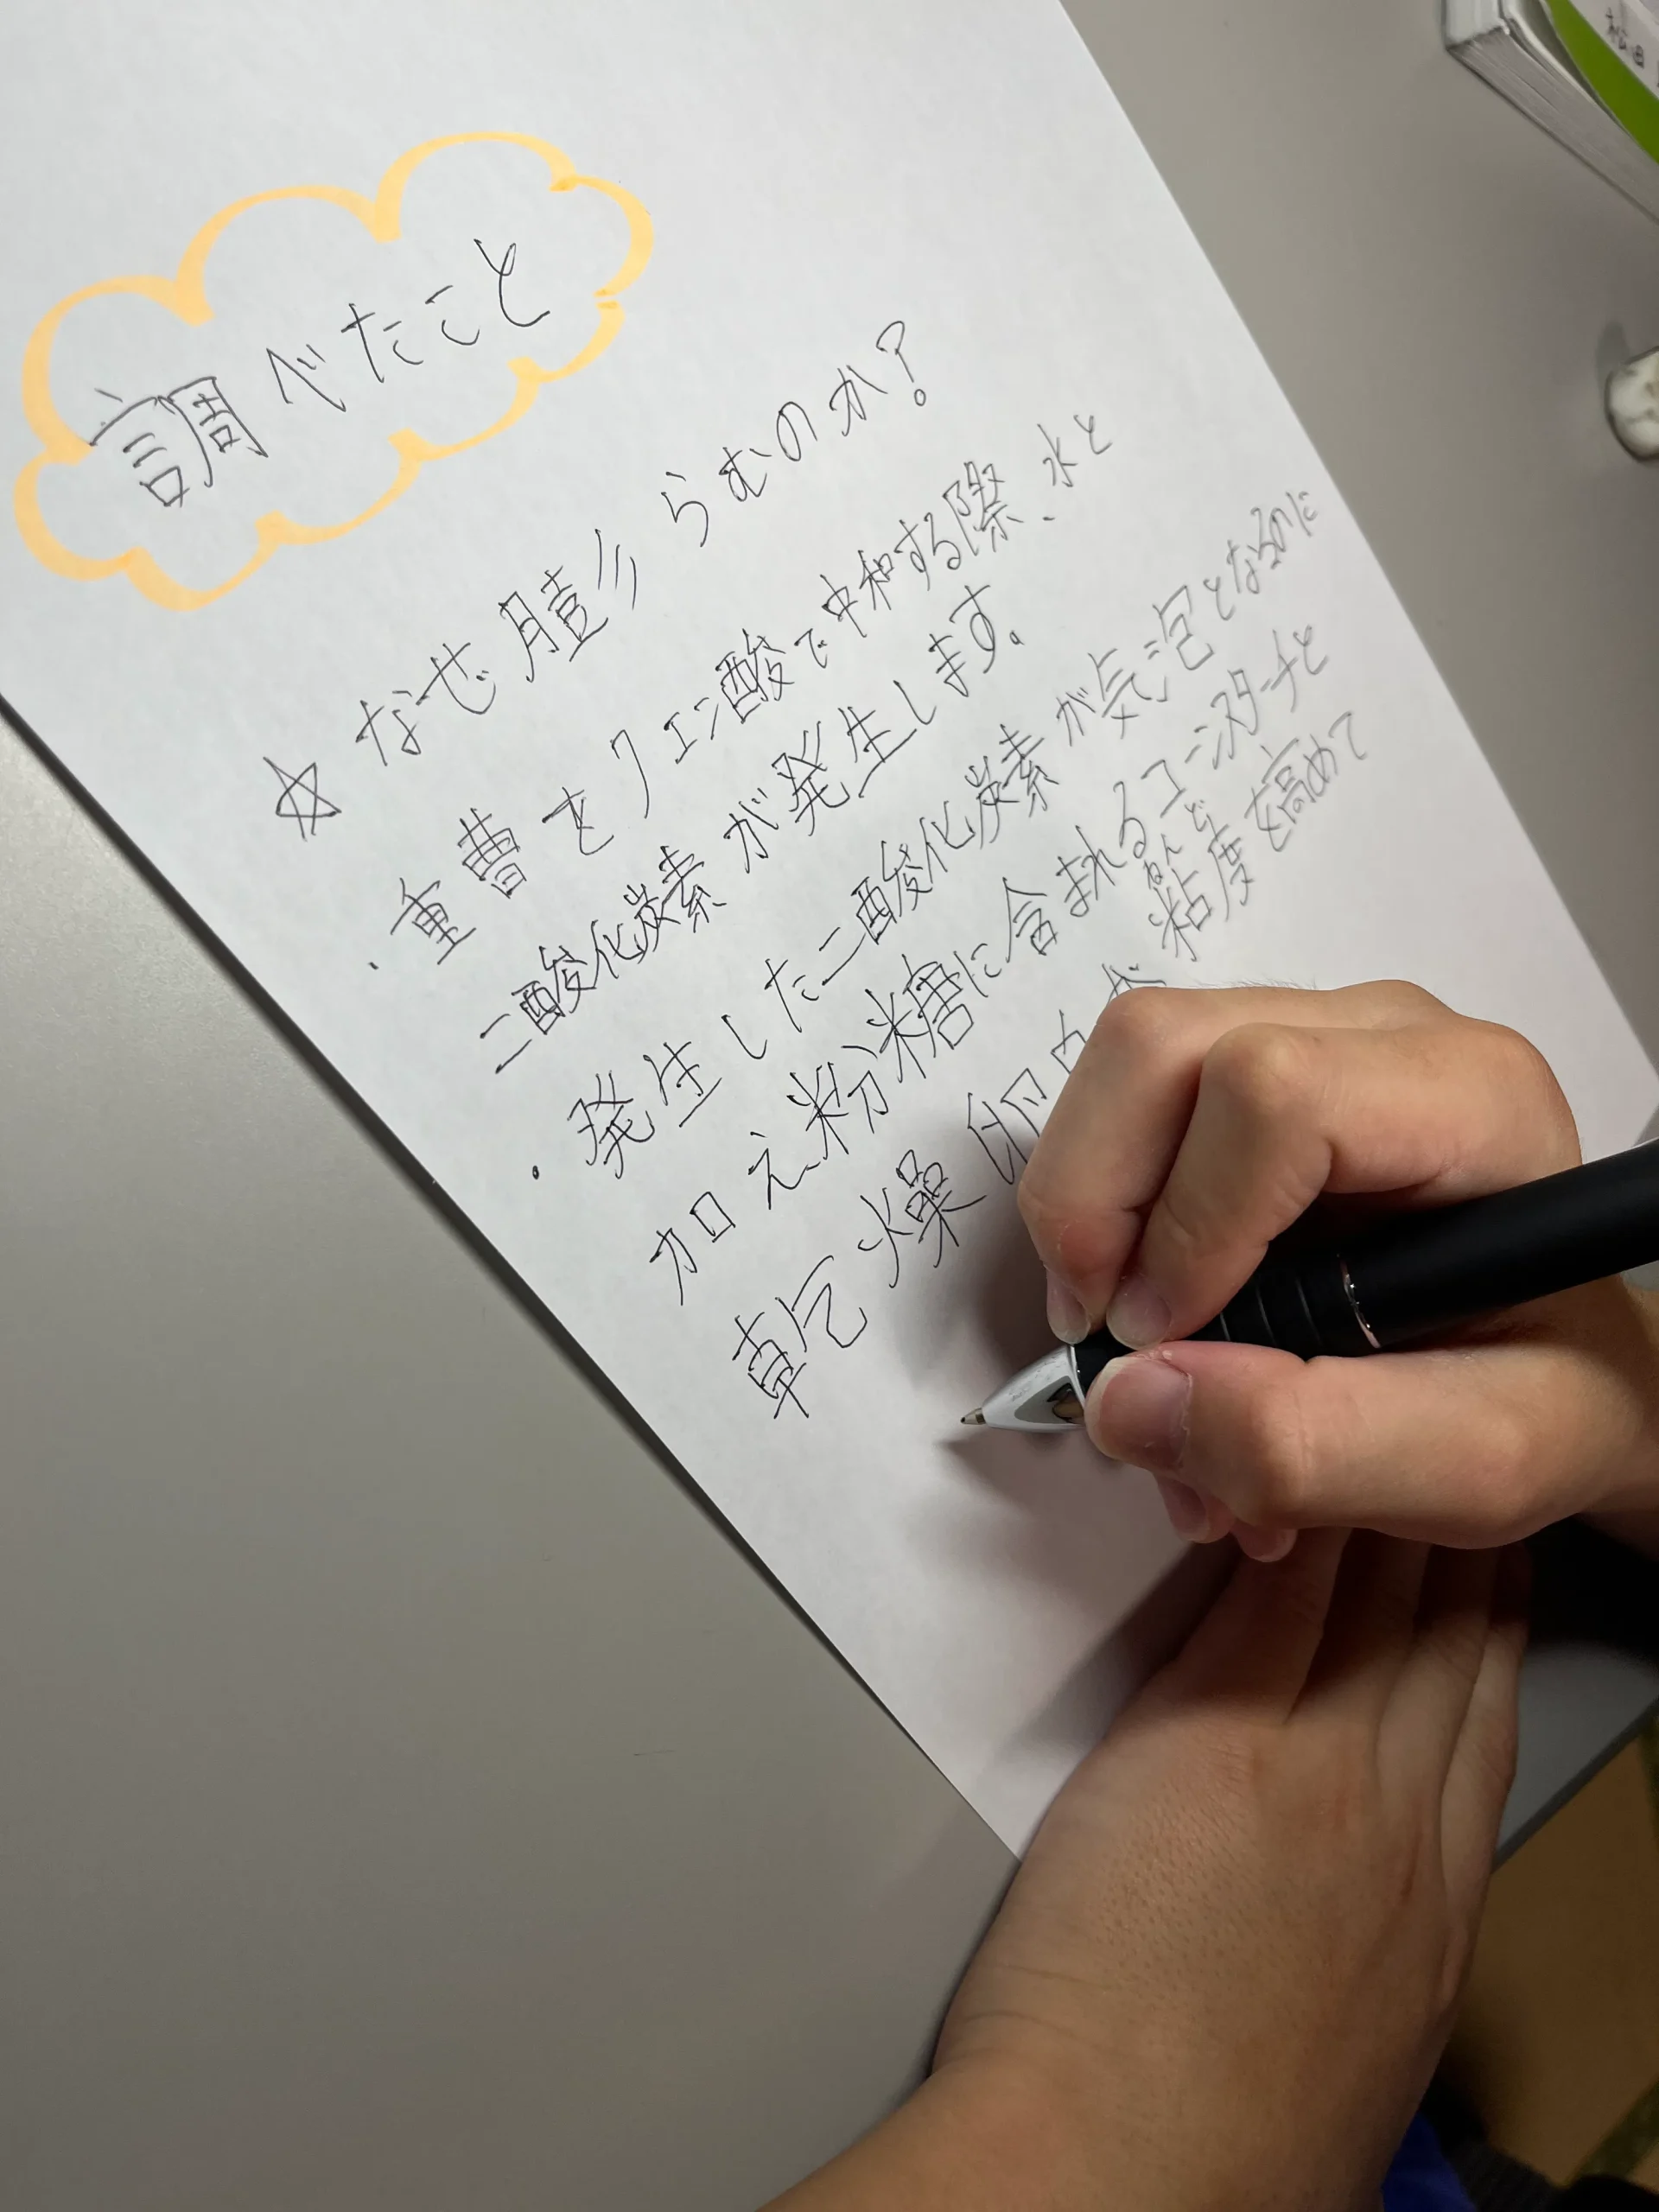 調べたこと
☆ なぜ膨らむのか?
・重曹をクエン酸で中和する際、水と
二酸化炭素が発生します。
・発生した二酸化炭素が気泡となるのに
加え粉糖に含まれるコーンスターチと
ねんど
乾燥卵白が粘度を高めて
松田